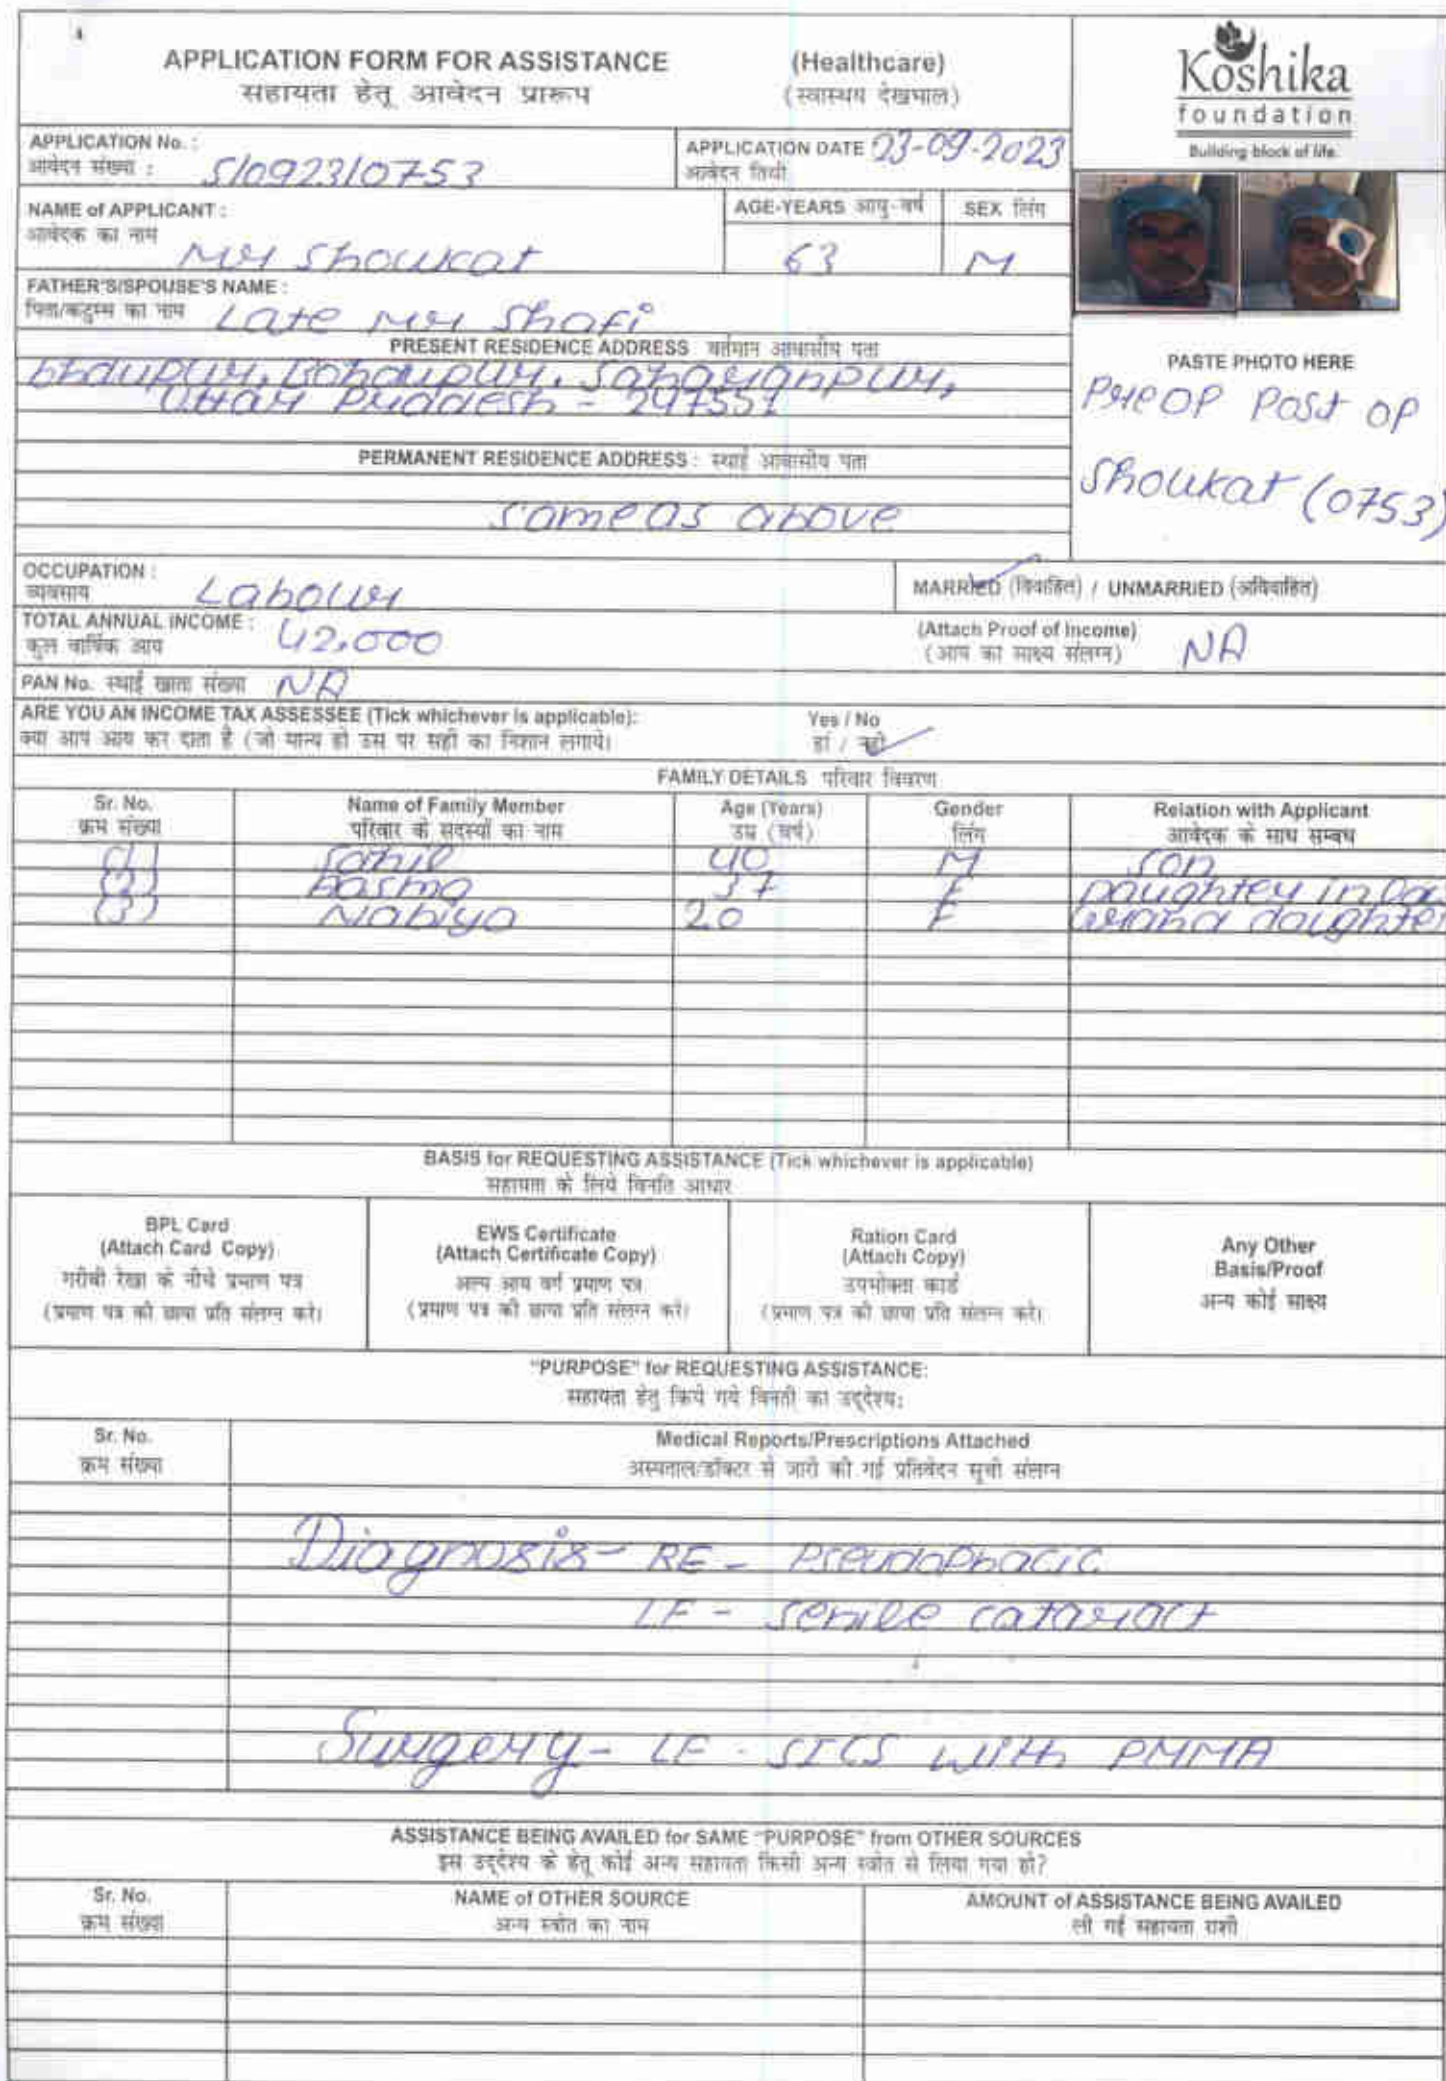 APPLICATION FORM FOR ASSISTANCE (Healthcare)
सहायता हेतू आवेदन प्रारूप (स्वास्थय देखभाल)
Koshika
foundation
Building block of life.
APPLICATION No. : S/0923/0753
आवेदन संख्या :
APPLICATION DATE 23-09-2023
आवेदन तिथी
NAME of APPLICANT :
आवेदक का नाम
Mr Shoukat
AGE-YEARS आयु-वर्ष
63
SEX लिंग
M
FATHER'S/SPOUSE'S NAME :
पिता/कटुम्ब का नाम Late Mr Shafi
PRESENT RESIDENCE ADDRESS वर्तमान आवासीय पता
Saharanpur,
Uttar Pradesh - 247551
PERMANENT RESIDENCE ADDRESS : स्थाई आवासीय पता
Same as above
PASTE PHOTO HERE
Pre OP Post OP
Shoukat (0753)
OCCUPATION :
व्यवसाय Labour
MARRIED (विवाहित) / UNMARRIED (अविवाहित)
TOTAL ANNUAL INCOME :
कुल वार्षिक आय 42,000
(Attach Proof of Income)
(आय का साक्ष्य संलग्न) NA
PAN No. स्थाई खाता संख्या NA
ARE YOU AN INCOME TAX ASSESSEE (Tick whichever is applicable): Yes / No
क्या आप आय कर दाता है (जो मान्य हो उस पर सही का निशान लगाये। हां / नहीं
FAMILY DETAILS परिवार विवरण
Sr. No. Name of Family Member Age (Years) Gender Relation with Applicant
क्रम संख्या परिवार के सदस्यों का नाम उम्र (वर्ष) लिंग आवेदक के साथ सम्बध
(1) Sahil 40 M Son
(2) 37 F Daughter in
(3) Nabiya 20 F Grand daughter
BASIS for REQUESTING ASSISTANCE (Tick whichever is applicable)
सहायता के लिये विनति आधार
BPL Card
(Attach Card Copy)
गरीबी रेखा के नीचे प्रमाण पत्र
(प्रमाण पत्र की छाया प्रति संलग्न करें।
EWS Certificate
(Attach Certificate Copy)
अल्प आय वर्ग प्रमाण पत्र
(प्रमाण पत्र की छाया प्रति संलग्न करें।
Ration Card
(Attach Copy)
उपभोक्ता कार्ड
(प्रमाण पत्र की छाया प्रति संलग्न करें।
Any Other
Basis/Proof
अन्य कोई साक्ष्य
"PURPOSE" for REQUESTING ASSISTANCE:
सहायता हेतु किये गये विनती का उद्देश्य:
Sr. No. Medical Reports/Prescriptions Attached
क्रम संख्या अस्पताल/डॉक्टर से जारी की गई प्रतिवेदन सूची संलग्न
Diagnosis - RE - Pseudophacic
LE - Senile cataract
Surgery - LE - SICS with PMMA
ASSISTANCE BEING AVAILED for SAME "PURPOSE" from OTHER SOURCES
इस उद्देश्य के हेतू कोई अन्य सहायता किसी अन्य स्त्रोत से लिया गया हो?
Sr. No. NAME of OTHER SOURCE AMOUNT of ASSISTANCE BEING AVAILED
क्रम संख्या अन्य स्त्रोत का नाम ली गई सहायता राशी